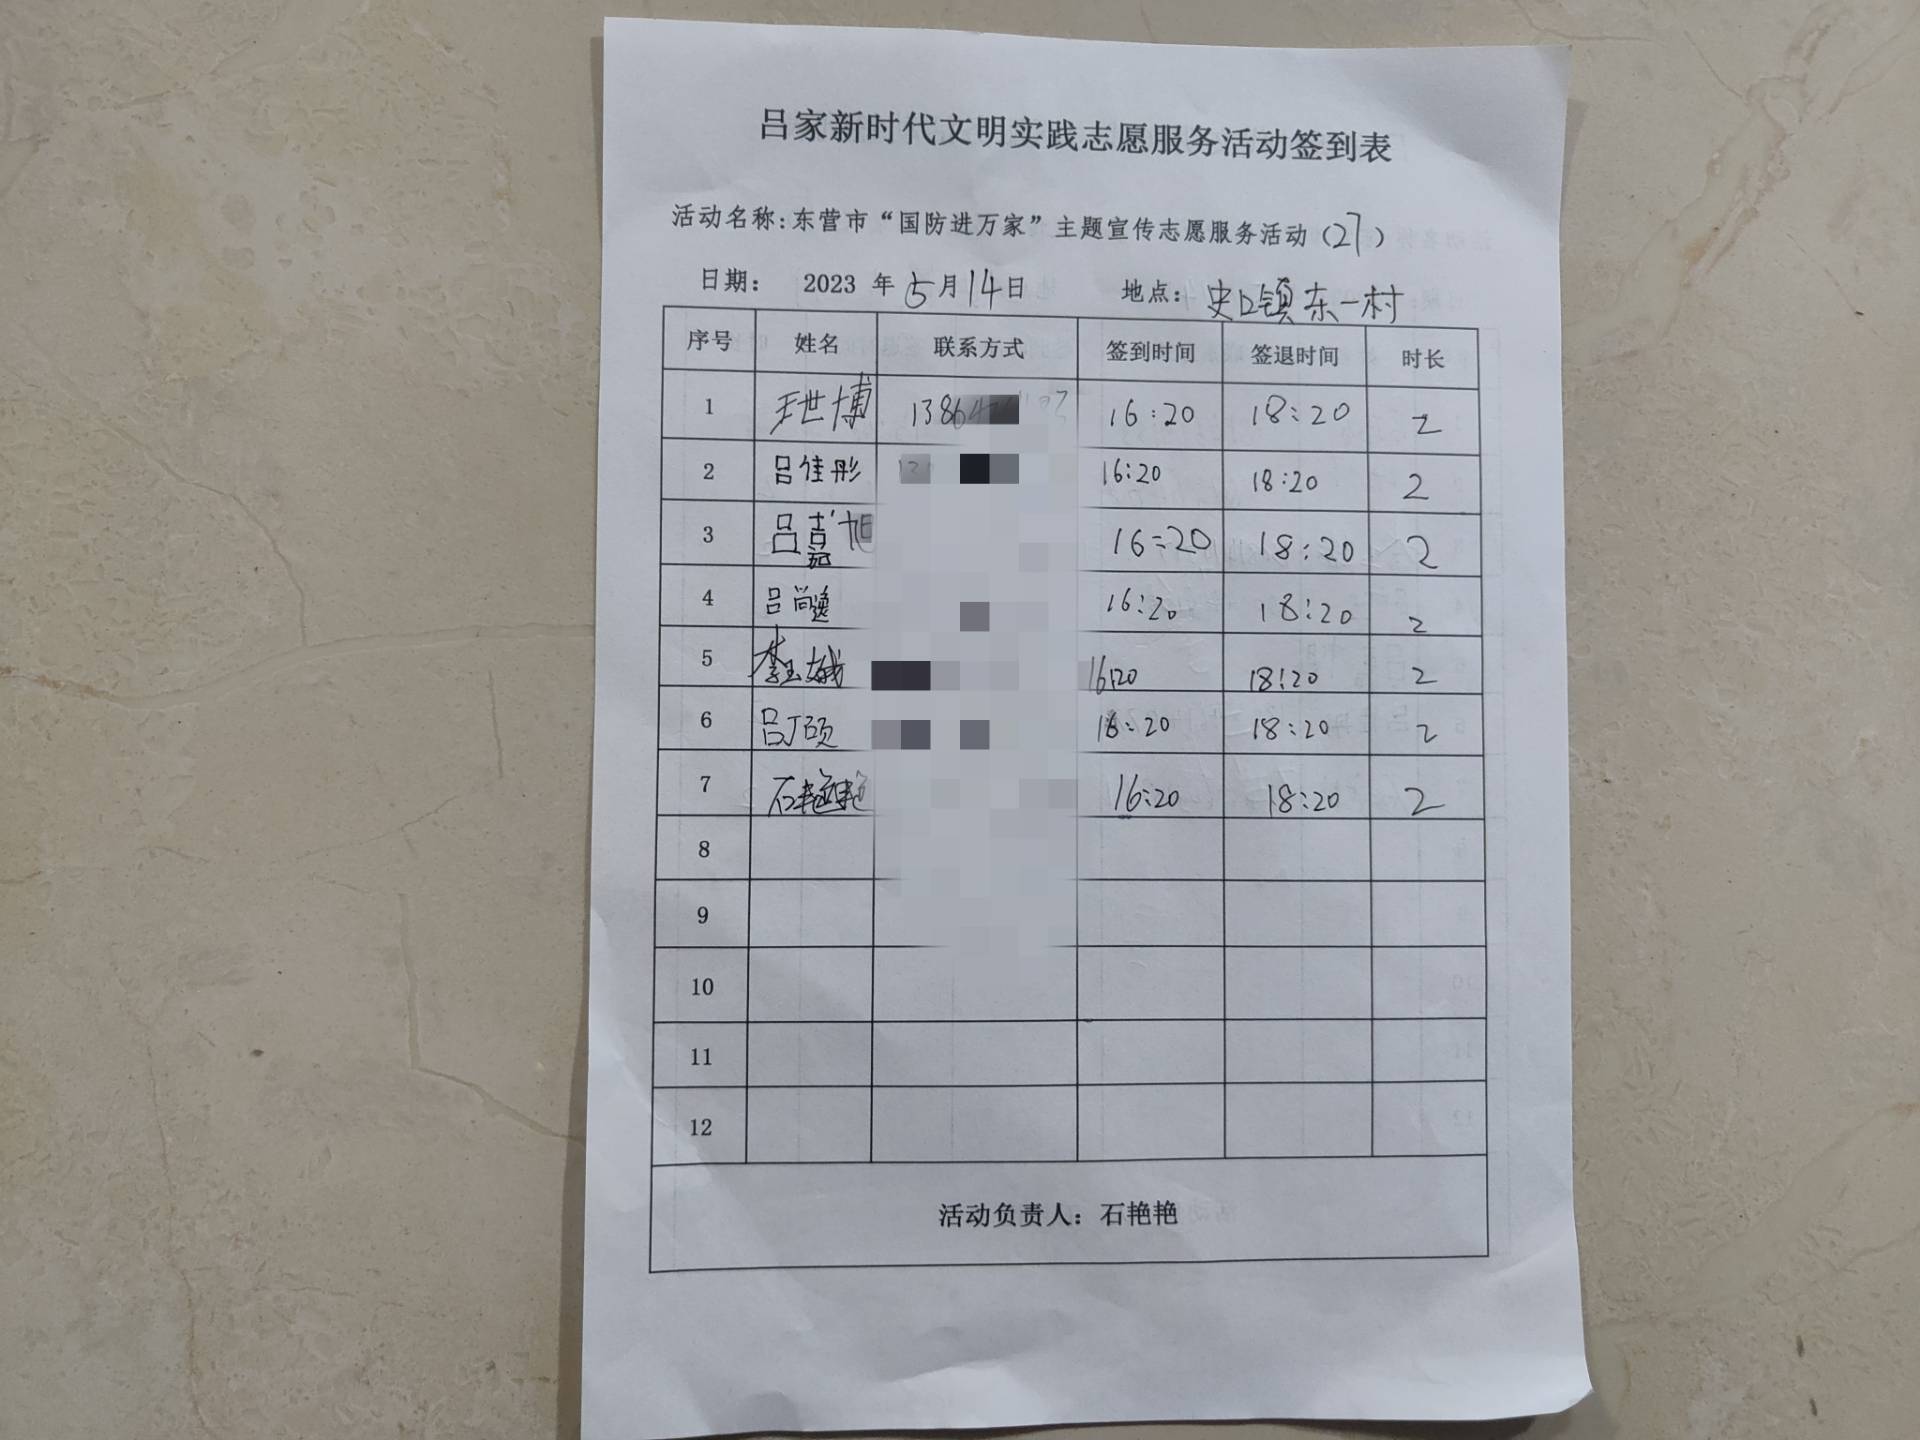 吕家新时代文明实践志愿服务活动签到表
活动名称:东营市“国防进万家”主题宣传志愿服务活动(27)
日期: 2023 年 5月14日 地点: 史口镇东一村
序号 姓名 联系方式 签到时间 签退时间 时长
1 王世博 1386 16:20 18:20 2
2 吕佳彤 16:20 18:20 2
3 吕嘉旭 16:20 18:20 2
4 吕尚逸 16:20 18:20 2
5 李玉娥 16:20 18:20 2
6 吕 硕 16:20 18:20 2
7 石艳艳 16:20 18:20 2
8
9
10
11
12
活动负责人: 石艳艳